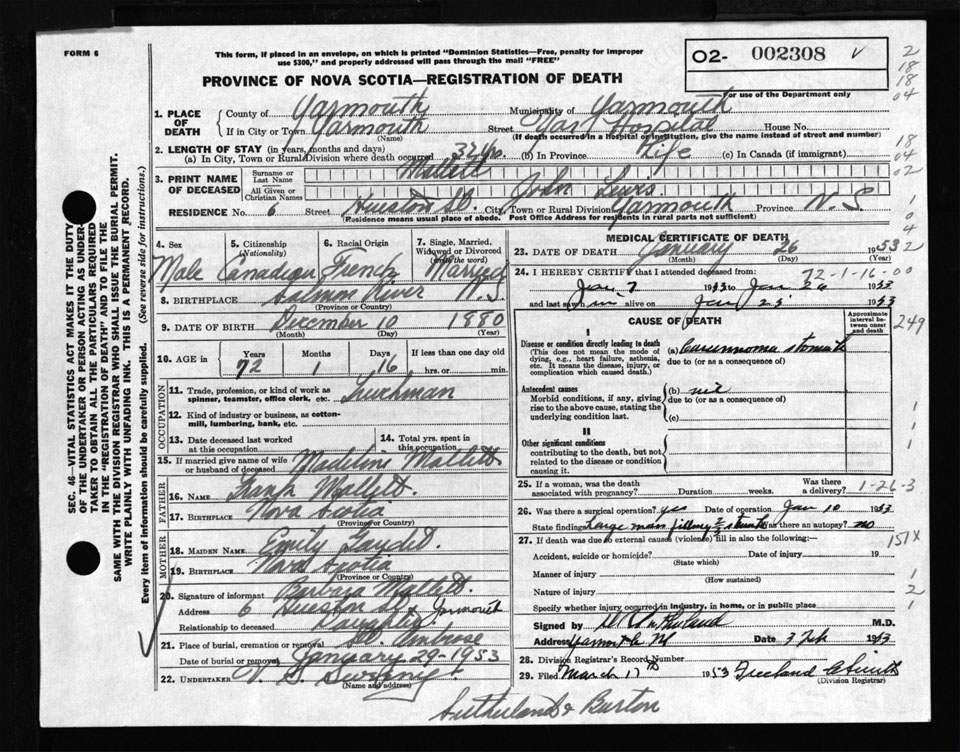 FORM 6
This form, if placed in an envelope, on which is printed "Dominion Statistics—Free, penalty for improper
use $300," and properly addressed will pass through the mail "FREE"
PROVINCE OF NOVA SCOTIA—REGISTRATION OF DEATH
O2- 002308
For use of the Department only
2
18
18
04
18
04
02
1
0
4
2
SEC. 46—VITAL STATISTICS ACT MAKES IT THE DUTY
OF THE UNDERTAKER OR PERSON ACTING AS UNDER-
TAKER TO OBTAIN ALL THE PARTICULARS REQUIRED
IN THE "REGISTRATION OF DEATH" AND TO FILE THE
SAME WITH THE DIVISION REGISTRAR WHO SHALL ISSUE THE BURIAL PERMIT.
WRITE PLAINLY WITH UNFADING INK. THIS IS A PERMANENT RECORD.
Every item of information should be carefully supplied. (See reverse side for instructions.)
1. PLACE OF DEATH
County of Yarmouth Municipality of Yarmouth
If in City or Town Yarmouth Street Yar Hospital House No.
(Name) (If death occurred in a hospital or institution, give the name instead of street and number)
2. LENGTH OF STAY (in years, months and days)
(a) In City, Town or Rural Division where death occurred 32 yrs. (b) In Province Life (c) In Canada (if immigrant)
3. PRINT NAME OF DECEASED
Surname or Last Name Mallett
All Given or Christian Names John Lewis
RESIDENCE No. 6 Street Hueston St. City, Town or Rural Division Yarmouth Province N.S.
(Residence means usual place of abode. Post Office Address for residents in rural parts not sufficient)
4. Sex Male
5. Citizenship (Nationality) Canadian
6. Racial Origin French
7. Single, Married, Widowed or Divorced (write the word) Married
8. BIRTHPLACE Salmon River N.S.
(Province or Country)
9. DATE OF BIRTH December 10 1880
(Month) (Day) (Year)
10. AGE in Years 72 Months 1 Days 16 If less than one day old
hrs. or min.
OCCUPATION
11. Trade, profession, or kind of work as
spinner, teamster, office clerk, etc. Truckman
12. Kind of industry or business, as cotton-
mill, lumbering, bank, etc.
13. Date deceased last worked
at this occupation
14. Total yrs. spent in
this occupation
15. If married give name of wife
or husband of deceased Madeline Mallett
FATHER
16. NAME Frank Mallett
17. BIRTHPLACE Nova Scotia
(Province or Country)
MOTHER
18. MAIDEN NAME Emily Gaudet
19. BIRTHPLACE Nova Scotia
(Province or Country)
20. Signature of informant Barbara Mallett
Address 6 Hueston St Yarmouth
Relationship to deceased Daughter
21. Place of burial, cremation or removal St. Ambrose
Date of burial or removal January 29-1953
22. UNDERTAKER V. S. Sweeny
(Name and address)
MEDICAL CERTIFICATE OF DEATH
23. DATE OF DEATH January 26 1953
(Month) (Day) (Year)
24. I HEREBY CERTIFY that I attended deceased from: 72-1-16-00
Jan 7 1953 to Jan 26 1953
and last saw him alive on Jan 25 1953
CAUSE OF DEATH
Approximate interval between onset and death
249
I
Disease or condition directly leading to death
(This does not mean the mode of
dying, e.g., heart failure, asthenia,
etc. It means the disease, injury, or
complication which caused death.)
(a) Carcinoma stomach
due to (or as a consequence of)
Antecedent causes
Morbid conditions, if any, giving
rise to the above cause, stating the
underlying condition last.
(b) nil
due to (or as a consequence of)
(c)
II
Other significant conditions
contributing to the death, but not
related to the disease or condition
causing it.
1
1
1
25. If a woman, was the death
associated with pregnancy? Duration weeks. Was there
a delivery?
1-26-3
26. Was there surgical operation? yes Date of operation Jan 10 1953
State findings Large mass filling 2/3 stomach Was there an autopsy? no
27. If death was due to external causes (violence) fill in also the following:—
151X
Accident, suicide or homicide? Date of injury 19
(State which)
Manner of injury 1
(How sustained)
Nature of injury 2
Specify whether injury occurred in industry, in home, or in public place 1
Signed by M.D.
Address Yarmouth NS Date 3 Feb 1953
28. Division Registrar's Record Number
29. Filed March 17th 1953
(Division Registrar)
Sutherland & Burton